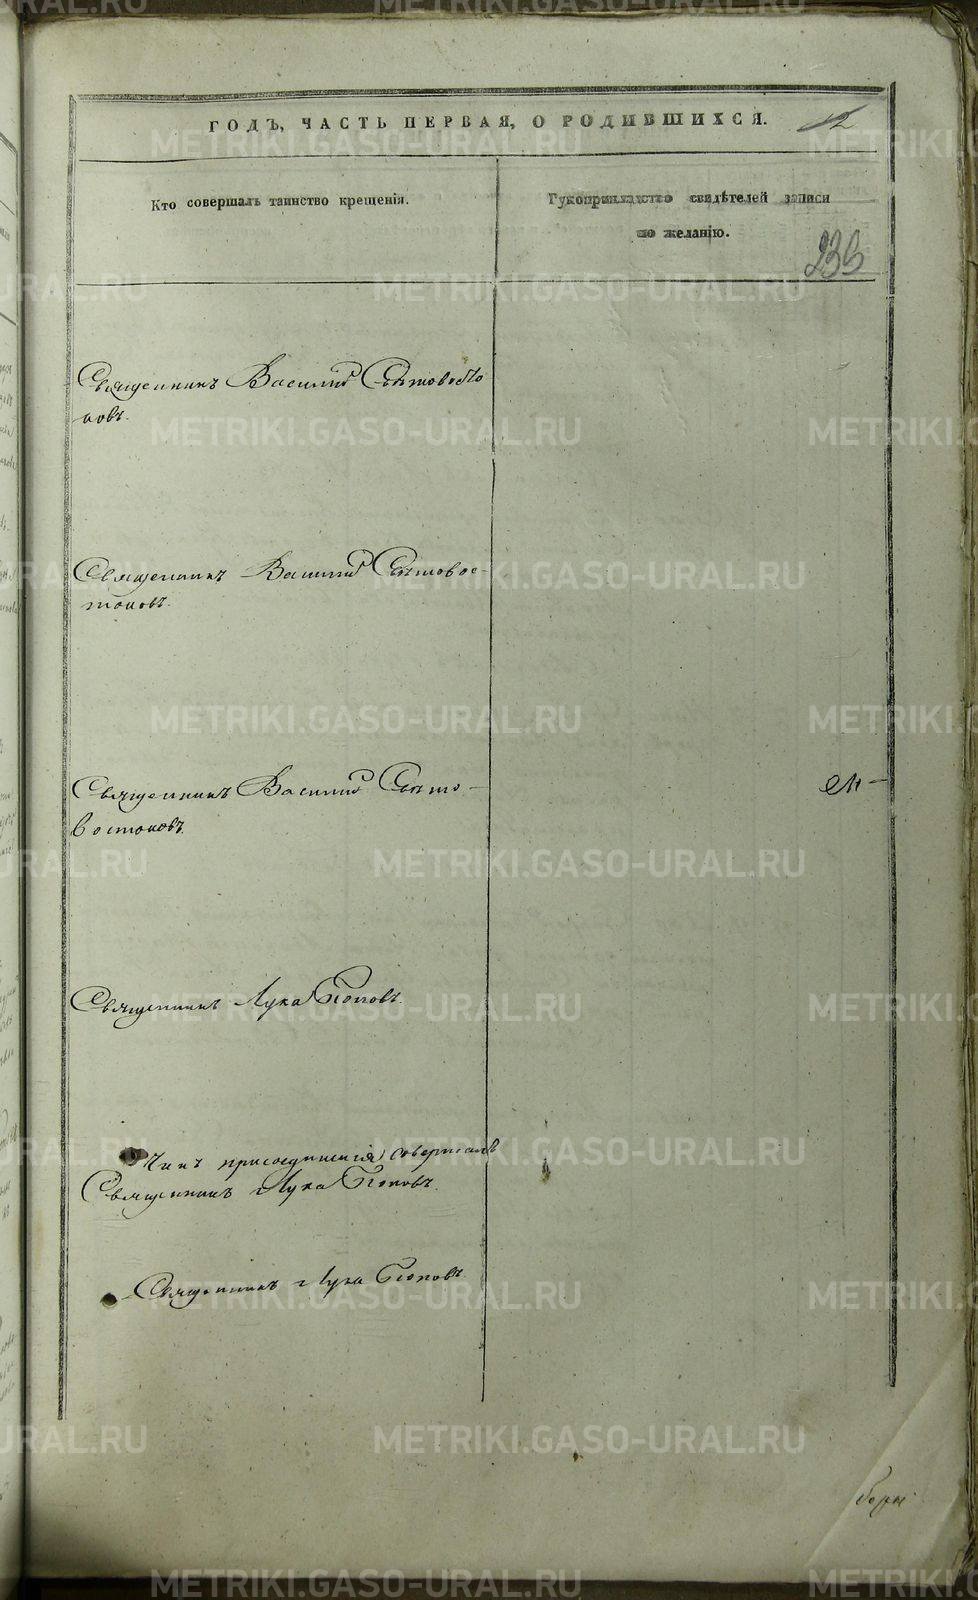 ГОДЪ, ЧАСТЬ ПЕРВАЯ, О РОДИВШИХСЯ.
12
Кто совершалъ таинство крещенія.
Рукоприкладство свидѣтелей записи
по желанію.
236
Священникъ Василій Свѣтовосто
ковъ.
Священникъ Василій Свѣтовос-
токовъ.
Священникъ Василій Свѣто-
востоковъ.
Священникъ Лука Поповъ.
Чинъ присоединенія совершалъ
Священникъ Лука Поповъ.
Священникъ Лука Поповъ.
METRIKI.GASO-URAL.RU